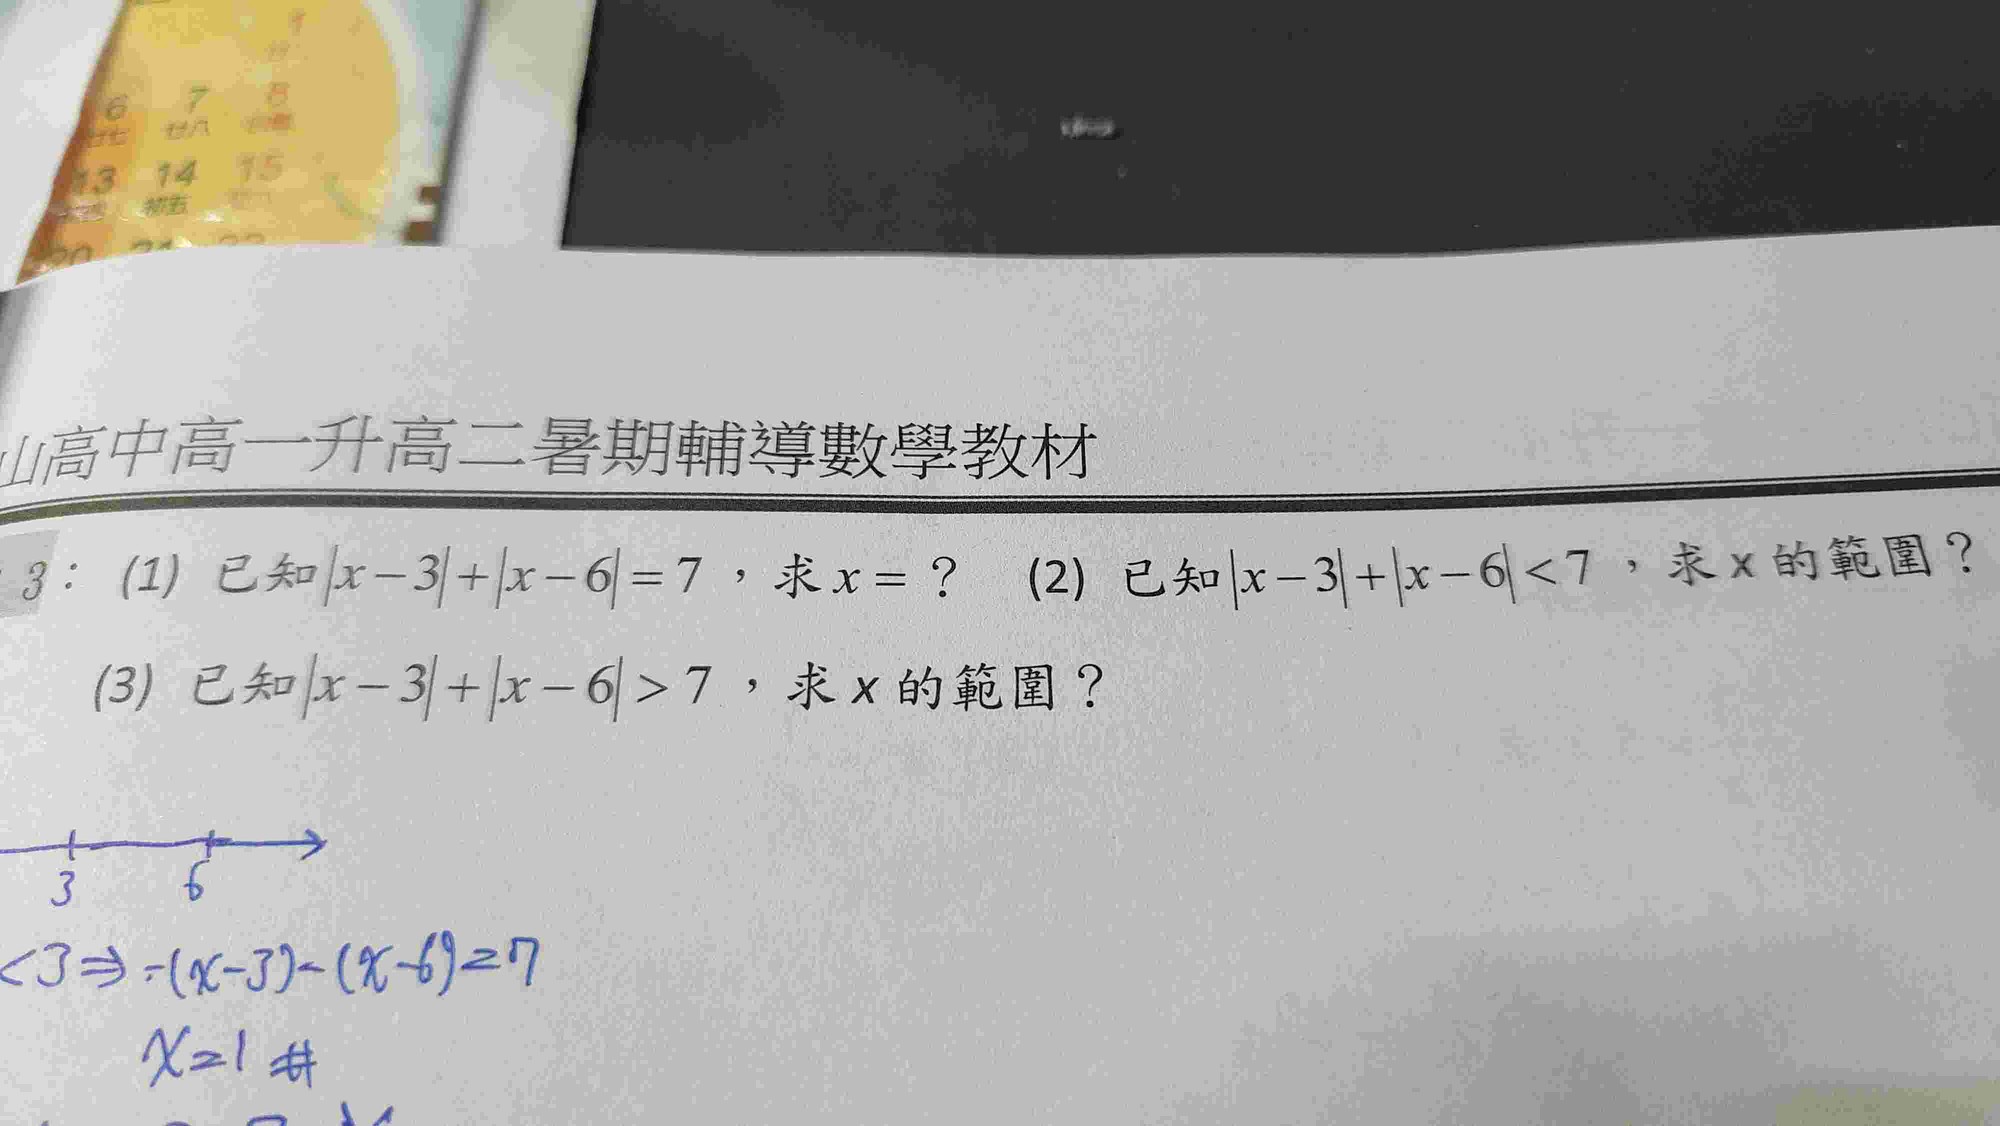 1
6 7 8
廿七 廿八
13 14 15
初五
20 21 22
山高中高一升高二暑期輔導數學教材
3: (1) 已知|x-3|+|x-6|=7，求x=？ (2) 已知|x-3|+|x-6|<7，求x的範圍？
(3) 已知|x-3|+|x-6|>7，求x的範圍？
3 6
<3⇒-(x-3)-(x-6)=7
x=1 #